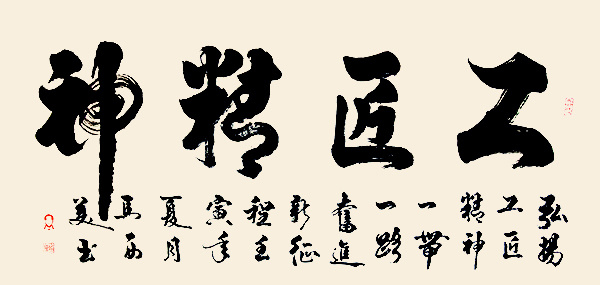 工匠精神
弘揚
工匠
精神
一帶
一路
奮進
新征
程壬
寅年
夏月
馬
美书